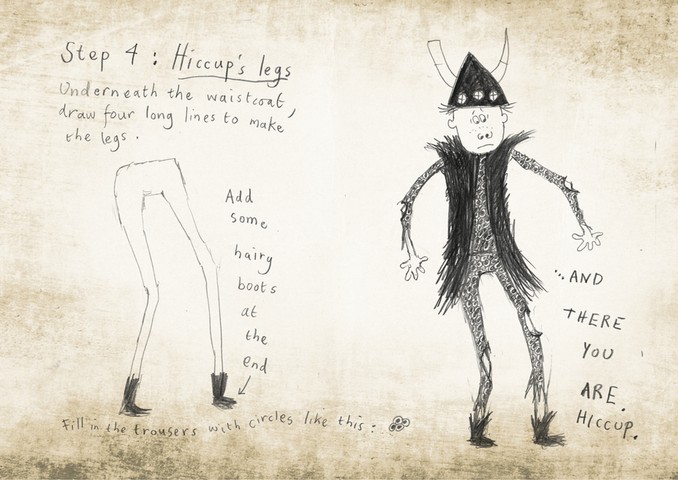 Step 4: Hiccup's legs
Underneath the waistcoat,
draw four long lines to make
the legs.
Add
some
hairy
boots
at
the
end
Fill in the trousers with circles like this:
...AND
THERE
YOU
ARE.
HICCUP.